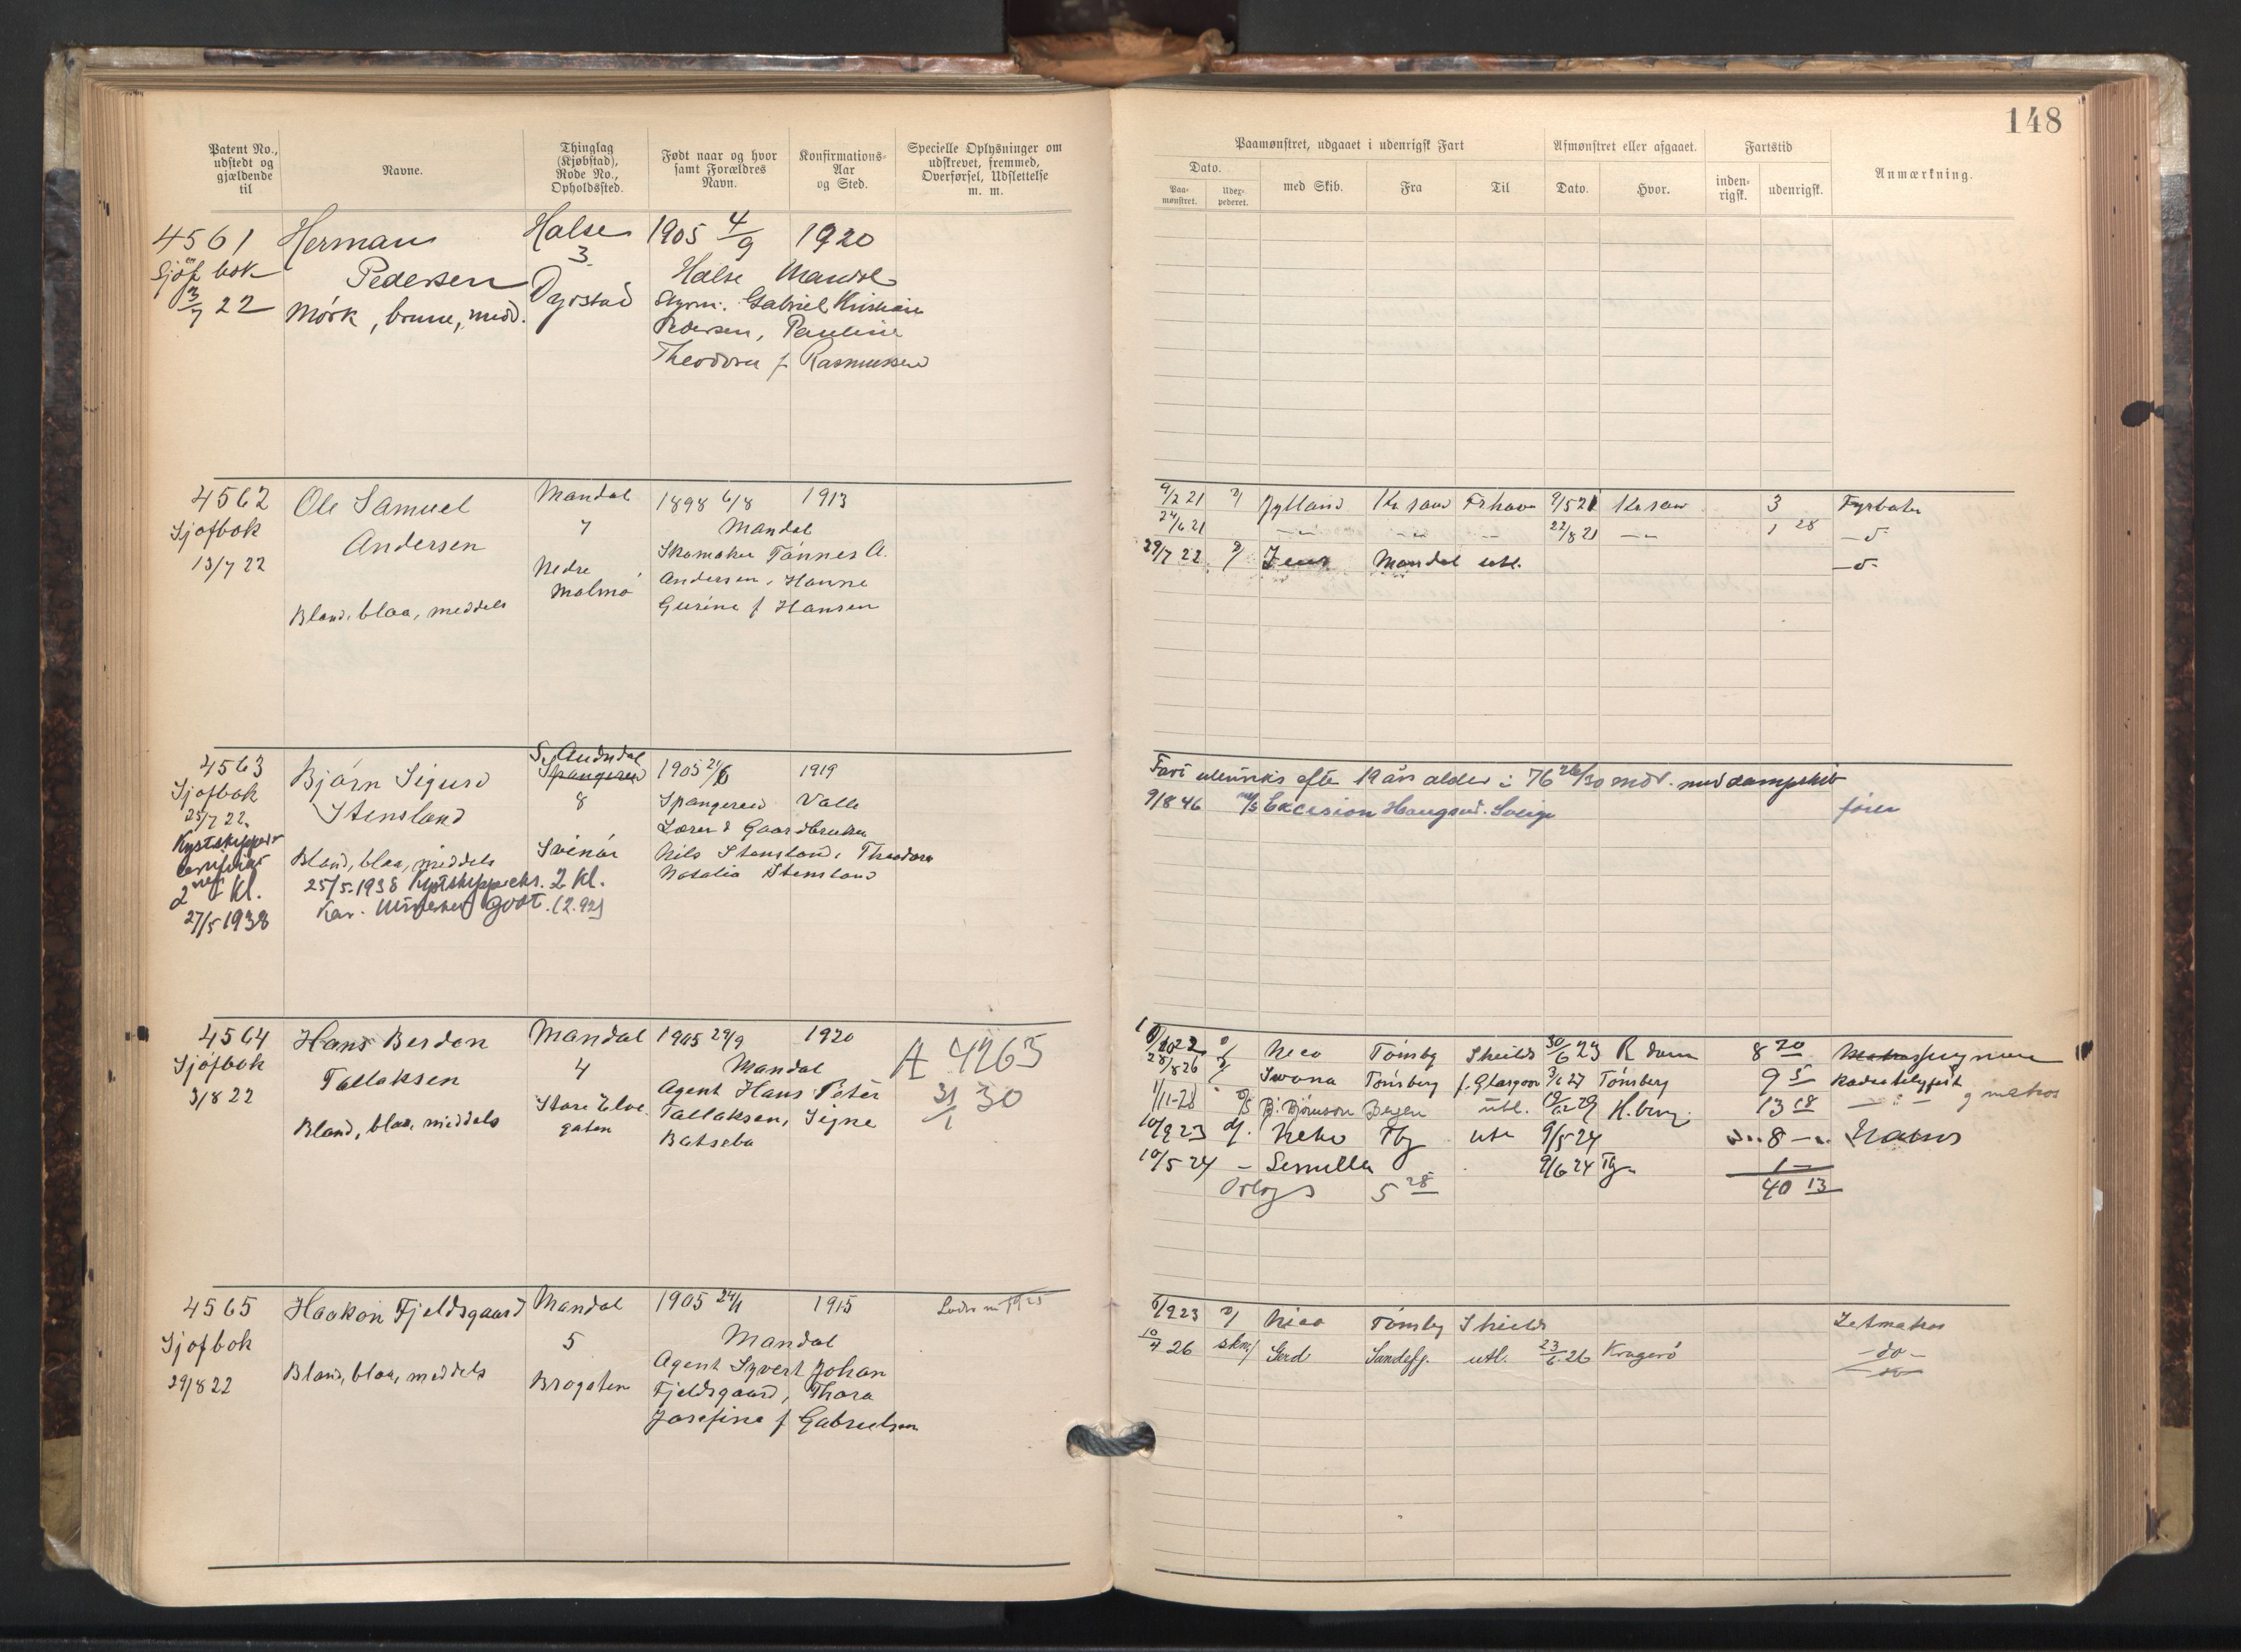 148
Patent No., udstedt og gjældende til
Navne.
Thinglag (Kjøbstad), Rode No., Opholdssted.
Født naar og hvor samt Forældres Navn.
Konfirmations-Aar og Sted.
Specielle Oplysninger om udskrevet, fremmed, Overførsel, Udslettelse m. m.
Paamønstret, udgaaet i udenrigsk Fart
Afmønstret eller afgaaet.
Fartstid
Anmærkning.
Dato.
Paa-mønstret.
Udex-pederet.
med Skib.
Fra
Til
Dato.
Hvor.
inden-rigsk.
udenrigsk.
4561 Herman Halse 1905 4/9 1920
Sjöf bok Pedersen 3 Halse Mandal
3/7 22 Mörk, brune, midd. Dyrstad Styrm. Gabriel Kristian
Pedersen, Pauline
Theodora f Rasmussen
4562 Ole Samuel Mandal 1898 6/8 1913
Sjöfbok Andersen 7 Mandal
13/7 22 Nedre Malmö Skomaker Tönnes A.
Andersen, Hanne
Bland, blaa, meddels Gurine f Hansen
9/2 21 Jylland Kr sand Frhavn 9/5 21 Krsan 3 Fyrböter
24/6 21 -"- -"- -"- 22/8 21 -"- 1 28 -d-
29/7 22 Mandal utl. -d-
4563 Björn Sigurd S. Audnedal Spangereid 1905 21/6 1919
Sjöfbok Stensland 8 Spangereid Valle
25/7 22 Lærer & Gaardbruker
Kystskipper Bland, blaa, middels Svinör Nils Stensland, Theodora
certifikat 25/5-1938 Kystskippereks. 2 Kl. Natalia Stensland
2nen Kl. Kar. godt. (2.92)
27/5 1938
Fart utenriks efter 19 års alder: 76 26/30 mdr. med dampskib
9/8 46 m/s Excision Haugesund. Sverige fører
4564 Hans Berdon Mandal 1905 29/9 1920 A 4263
Sjöfbok Tallaksen 4 Mandal 31/1 30
3/8 22 Store Elvegaten Agent Hans Peter
Bland, blaa, middels Tallaksen, Signe
Batseba
22 Neco Tönsbg Shields 30/6 23 R dam 8 20 jungmann
28/8 26 Iwona Tönsberg f. Glasgow 3/6 27 Tönsberg 9 5 Radiotelegfist
1/11-28 B. Björnson Bergen utl. 19/12 29 H.berg. 13 18 -"- g matros
10/9 23 Neko Tbg utl 9/5 24 8 — Matros
10/5 24 - Semella 9/6 24 Tbg. 1 —
Orlogs 5 28 40 13
4565 Haakon Fjeldsgaard Mandal 1905 24/1 1915
Sjöfbok 5 Mandal
29/8 22 Bland, blaa, middels Brogaten Agent Syvert Johan
Fjeldsgaard, Thora
Josefine f Gabrielsen
6/9 23 Neco Tönsbg Shields Letmatros
10/4 26 skn/ Gerd Sandefj. utl. 23/6-26 Kragerö -do-
-do-